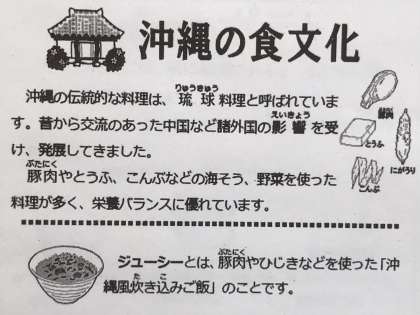 沖縄の食文化
沖縄の伝統的な料理は、琉球料理と呼ばれていま
りゅうきゅう
す。昔から交流のあった中国など諸外国の影響を受
えいきょう
け、発展してきました。
豚肉やとうふ、こんぶなどの海そう、野菜を使った
ぶたにく
料理が多く、栄養バランスに優れています。
とうふ
にがうり
こんぶ
ジューシーとは、豚肉やひじきなどを使った「沖
ぶたにく
縄風炊き込みご飯」のことです。
た こ